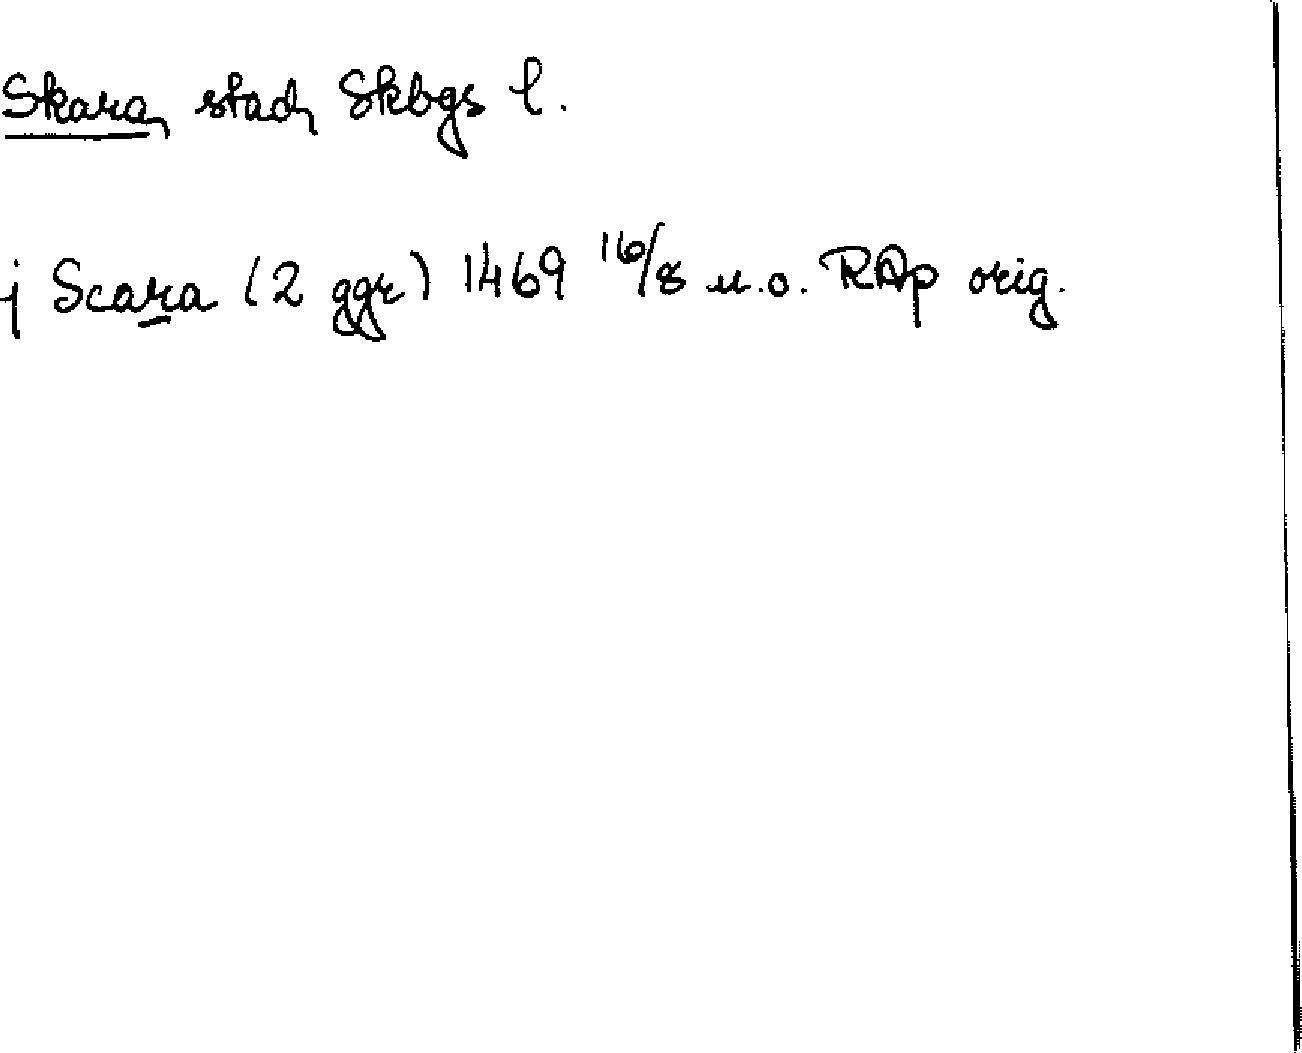 Skara, stad, Skbgs l.
j Scara (2 ggr) 1469 16/8 u.o. RAp orig.